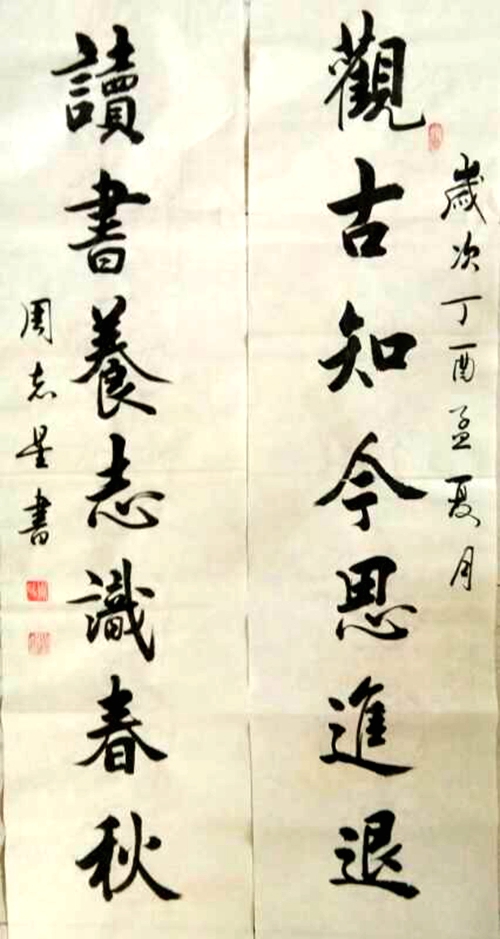 歲次丁酉孟夏月
觀古知今思進退
讀書養志識春秋
周志星書